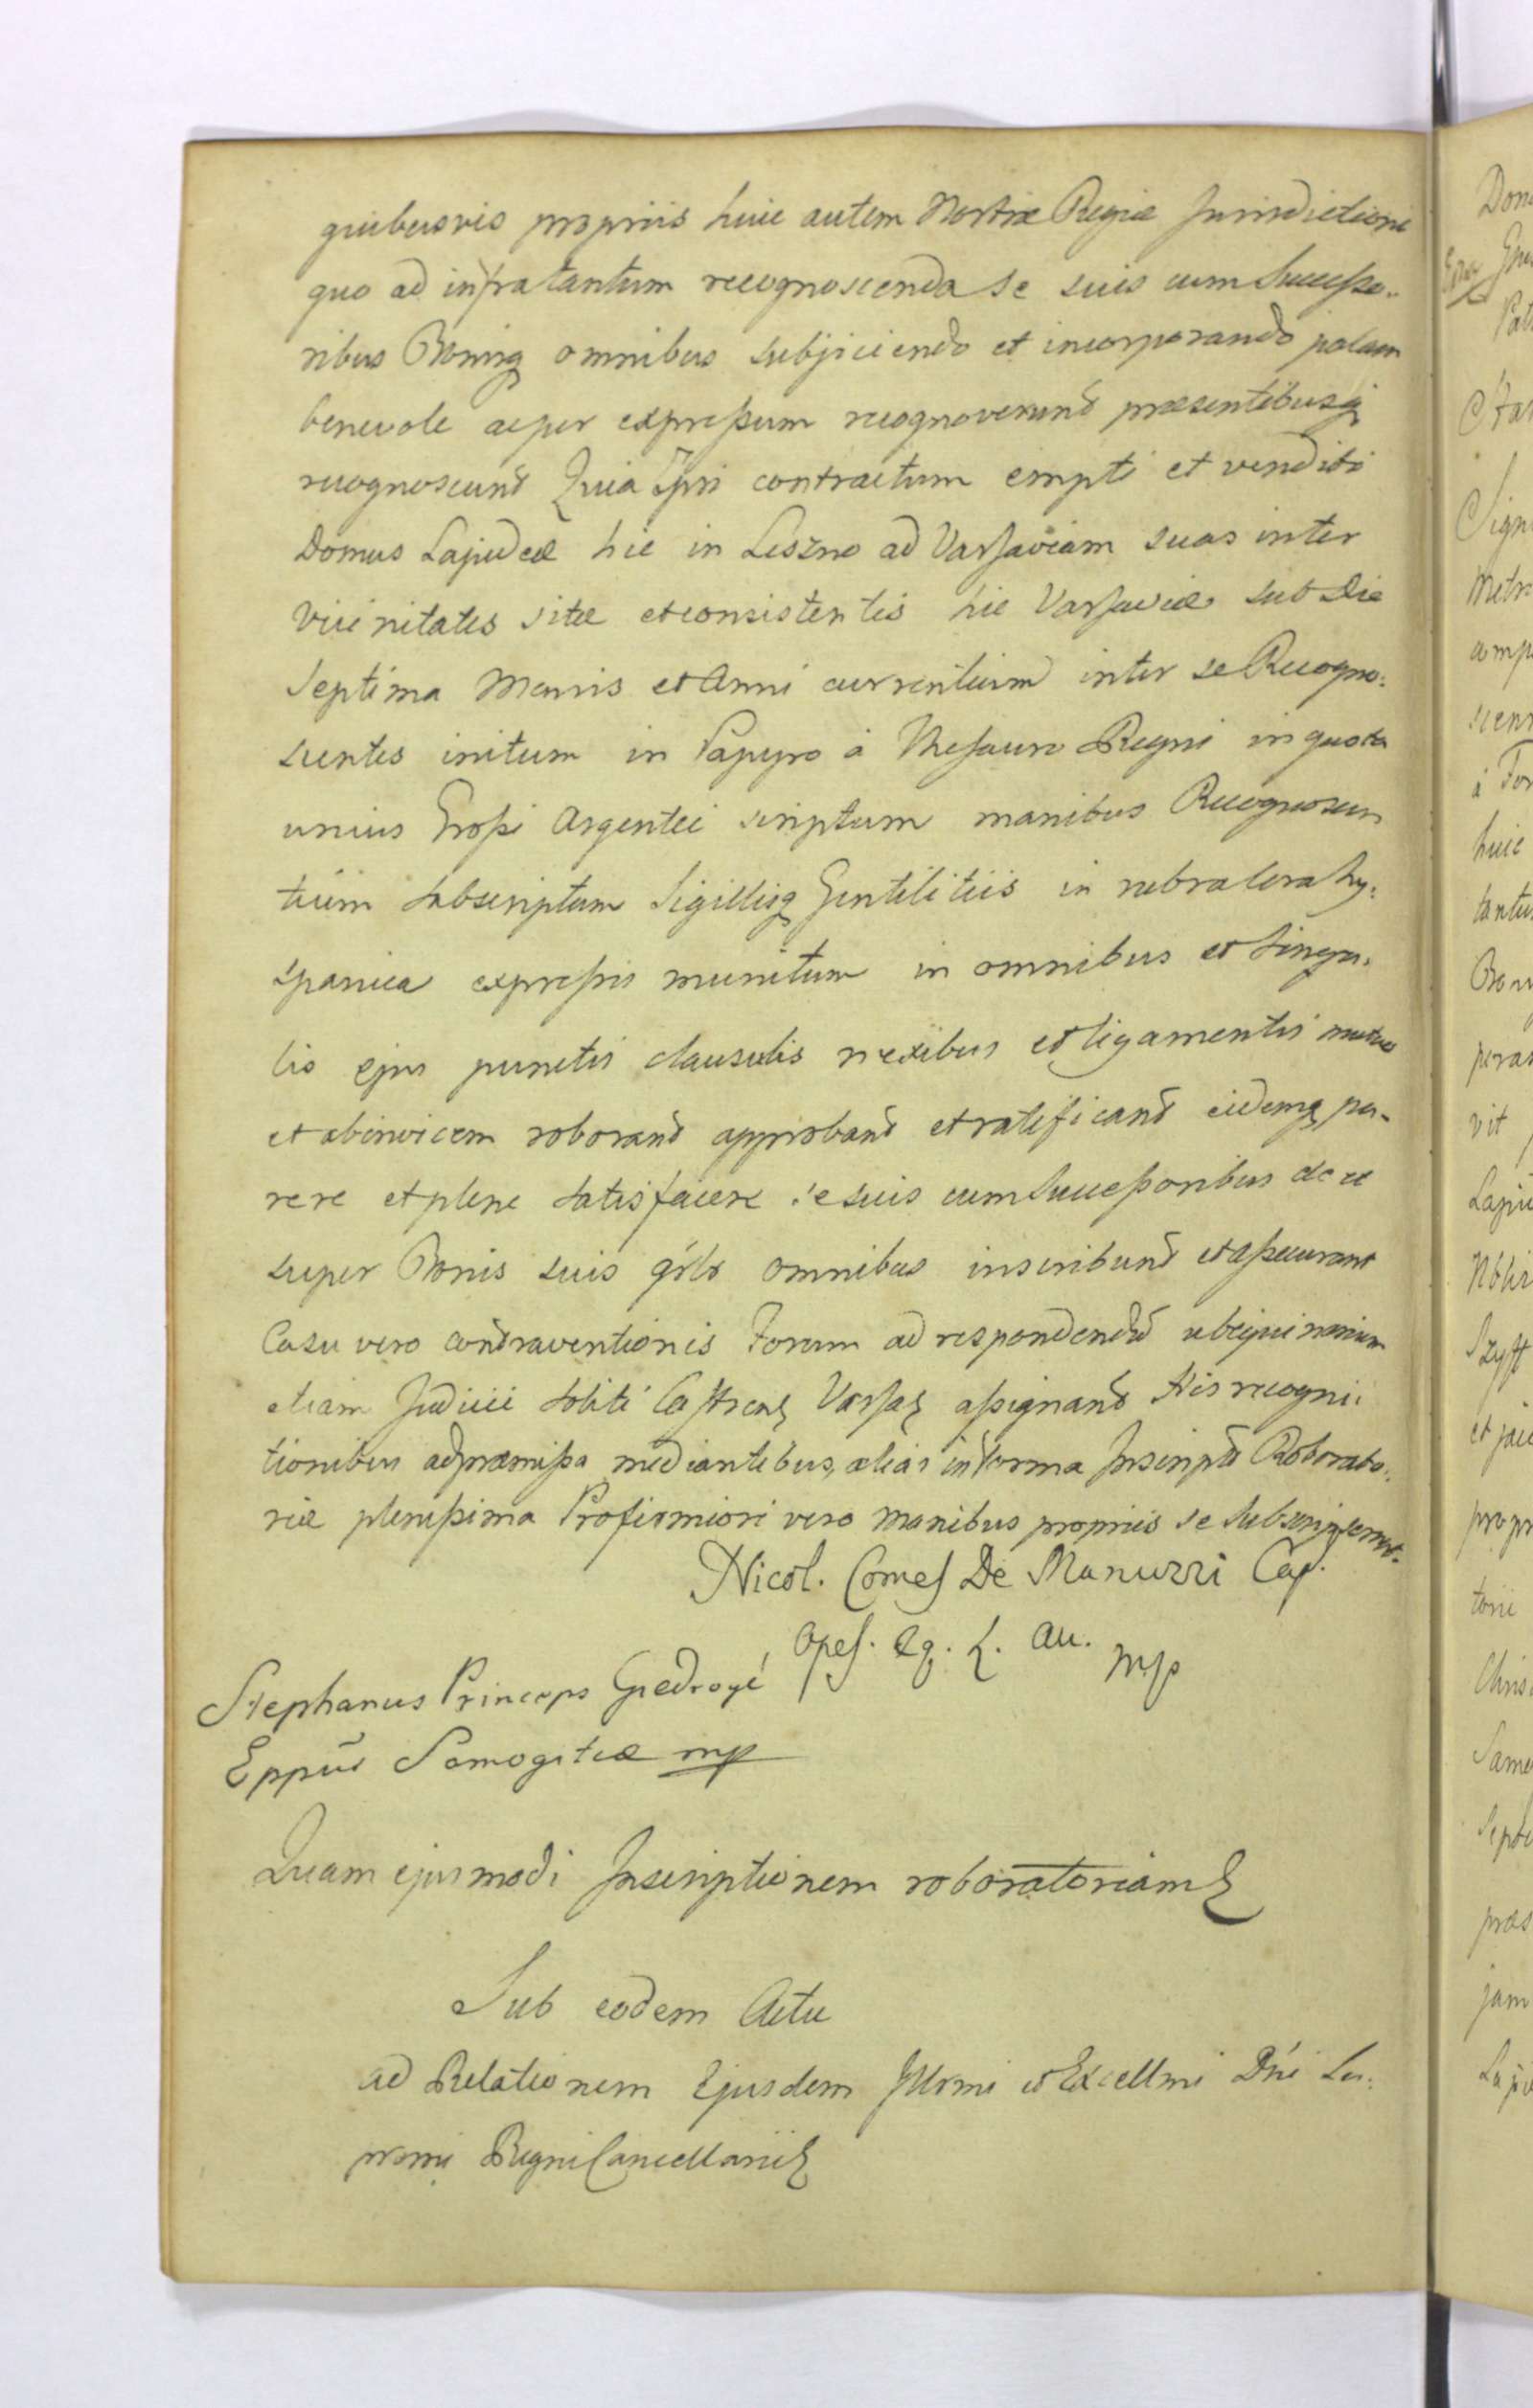 quibusvis propriis huic autem Nostræ Regiæ Jurisdictioni
quo ad infra tantum recognoscenda se suis cum Successo-
ribus Bonisq omnibus subjiciendo et incorporando palam
benevole ac per expressum recognoverunt præsentibusq
recognoscunt Quia Ipsi contractum empti et venditi
Domus Lapideæ hic in Leszno ad Varsaviam suas inter
vicinitates sitæ et consistentis hic Varsaviæ sub Die
Septima Mensis et Anni currentium inter se Recogno-
scentes initum in Papyro à Thesauro Regni in quota
unius Grossi Argentei scriptum manibus Recognoscen
tium subscriptum Sigillisq Gentilitiis in rubra cera hy-
spanica expressis munitum in omnibus et singu-
lis ejus punctis clausulis nexibus et ligamentis mutuo
et abinvicem roborant approbant et ratificant eidemq pa-
rere et plene satisfacere se suis cum Successoribus de et
super Bonis suis gñlr omnibus inscribunt et assecurant
Casu vero contraventionis Forum ad respondendũ ubiquinarium
etiam Judicii soliti Castrens Varsaẽ assignant His recogni-
tionibus ad præmissa mediantibus, alias in forma Inscript Roborato-
riæ plenissima Pro firmiori vero manibus propriis se subscripserunt.
Nicol. Comes De Manuzzi Cap.
Opes. Eq. L. Au. mp
Stephanus Princeps Giedroyć
Eppus Samogitiæ mp
Quam ejusmodi Inscriptionem roboratoriam
Sub eodem Actu
ad Relationem Ejusdem Illrmi et Excellmi Dñi Su-
premi Regni Cancellarii
Dom
Sign
Metr
amp
huic
tantu
vit
Lapi
propr
Chris
Same
Septe
præs
jam